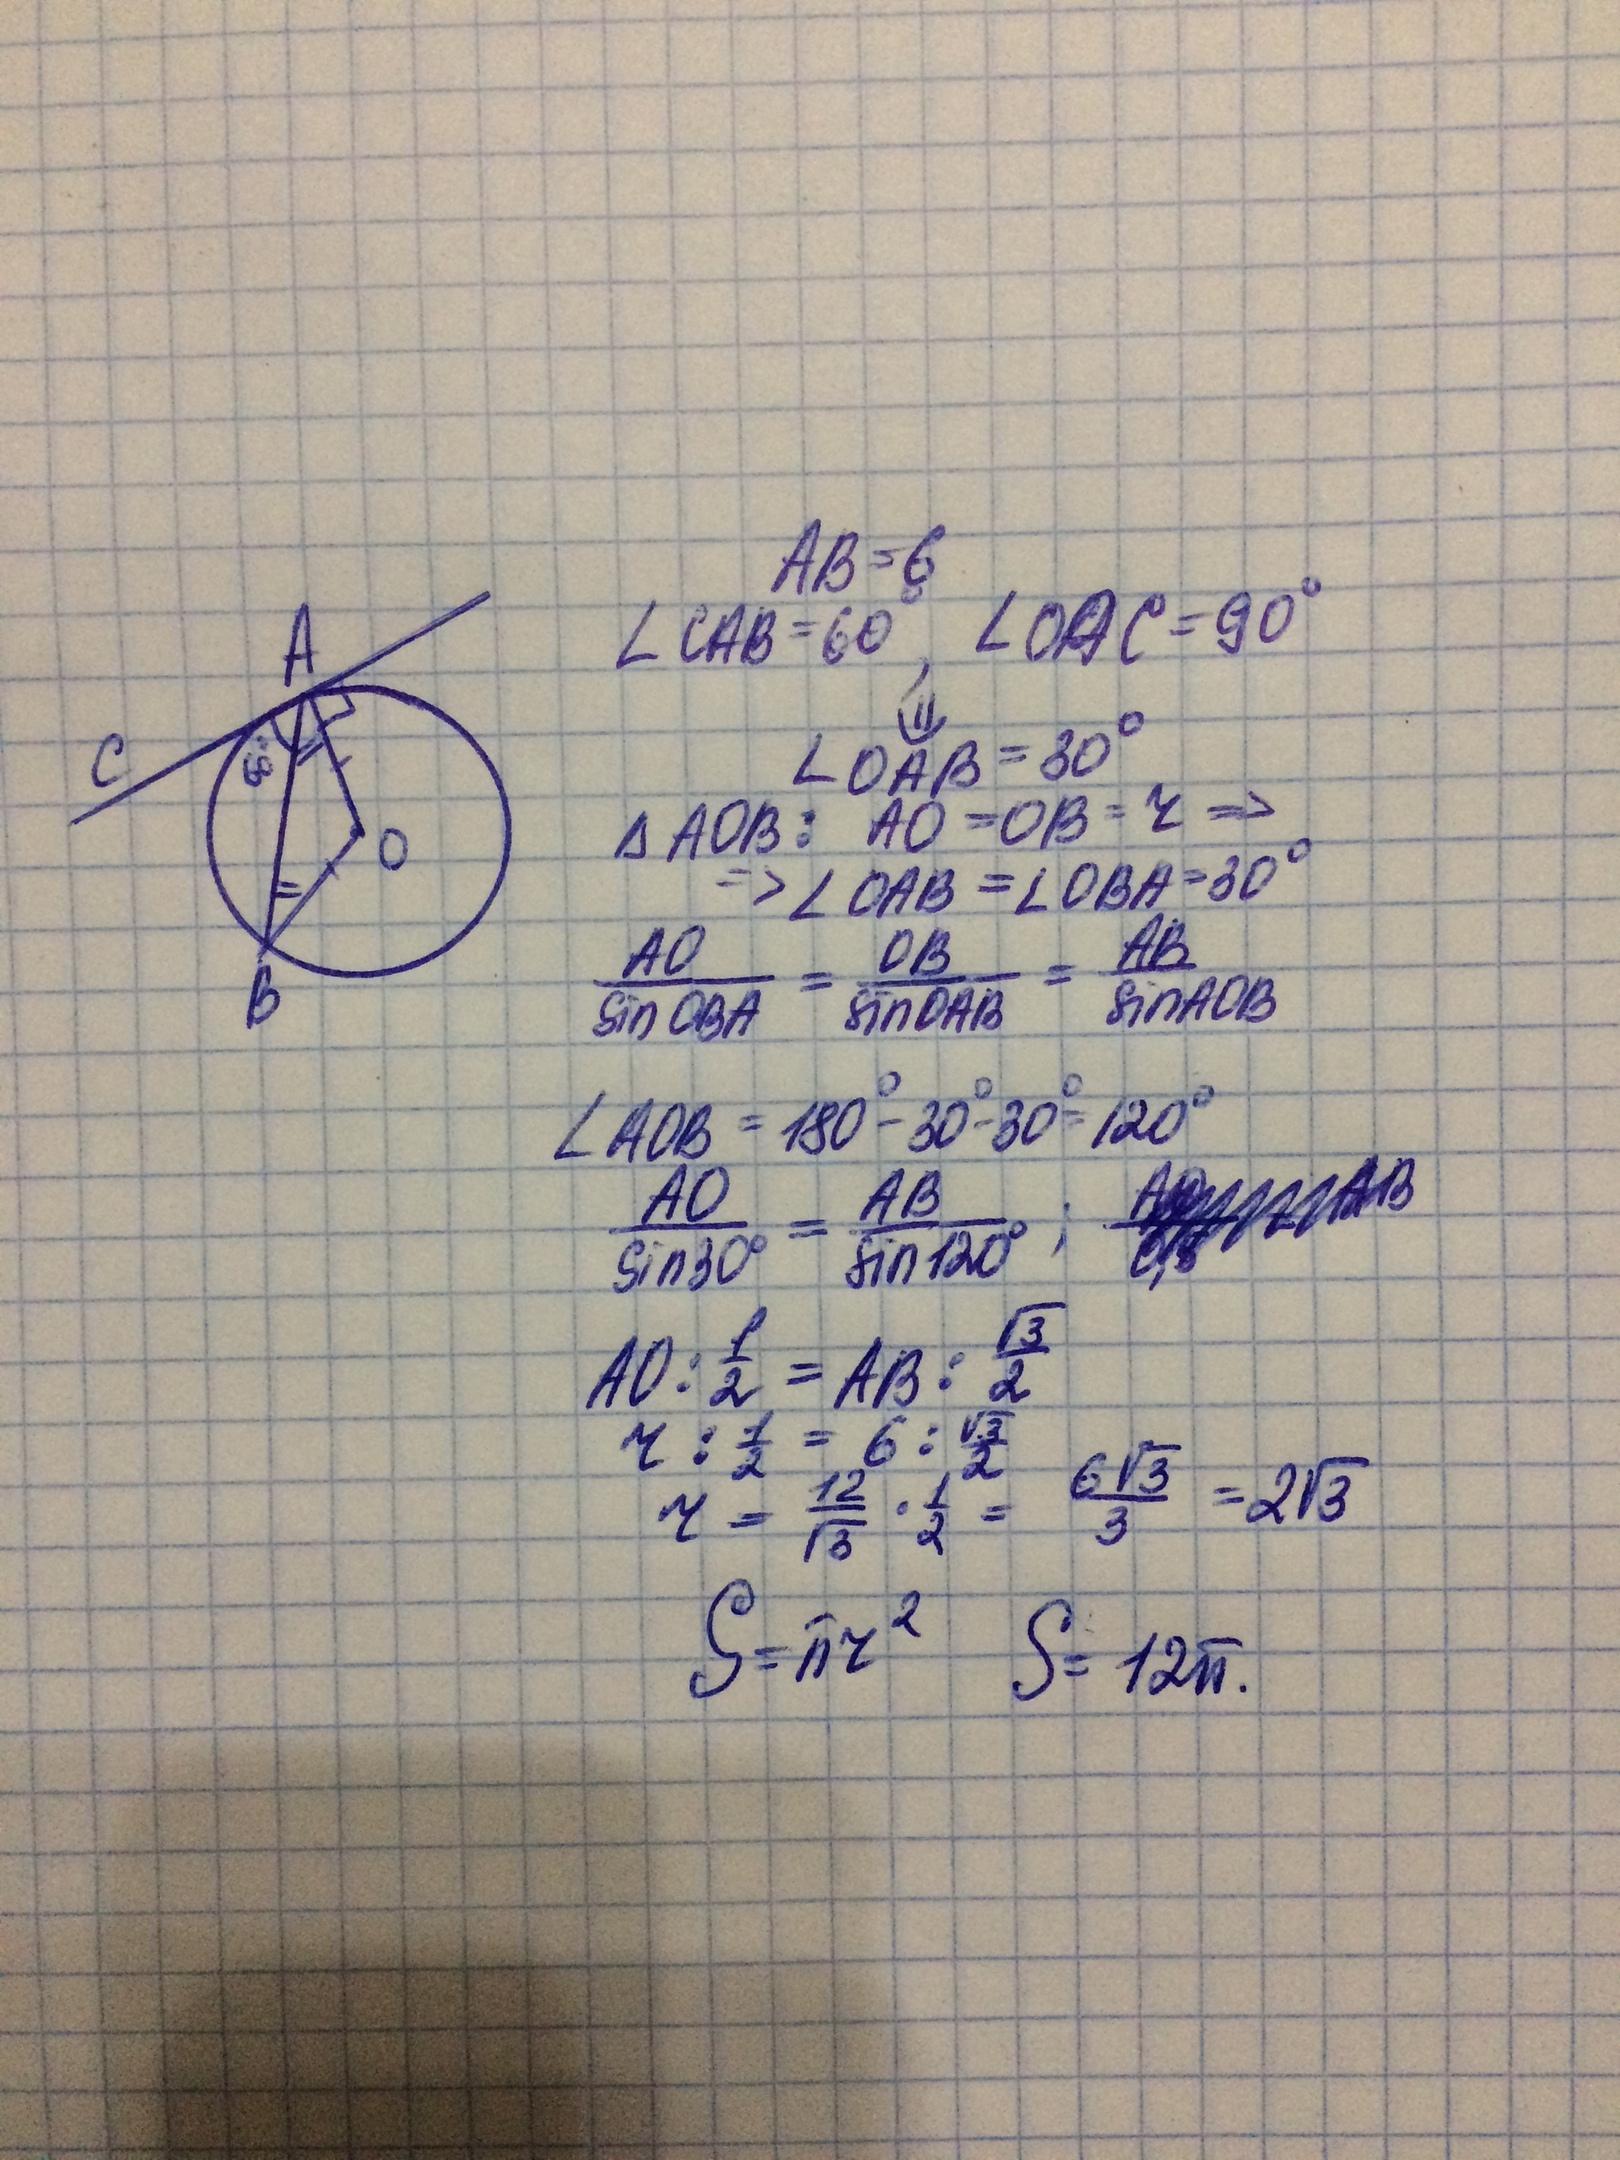 A
C
60°
O
B
AB = 6
∠CAB = 60°, ∠OAC = 90°
⇓
∠OAB = 30°
△AOB: AO = OB = r =>
=> ∠OAB = ∠OBA = 30°
AO/sin OBA = OB/sin OAB = AB/sin AOB
∠AOB = 180° - 30° - 30° = 120°
AO/sin 30° = AB/sin 120° ;
AO : 1/2 = AB : √3/2
r : 1/2 = 6 : √3/2
r = 12/√3 · 1/2 = 6√3/3 = 2√3
S = πr² S = 12π.